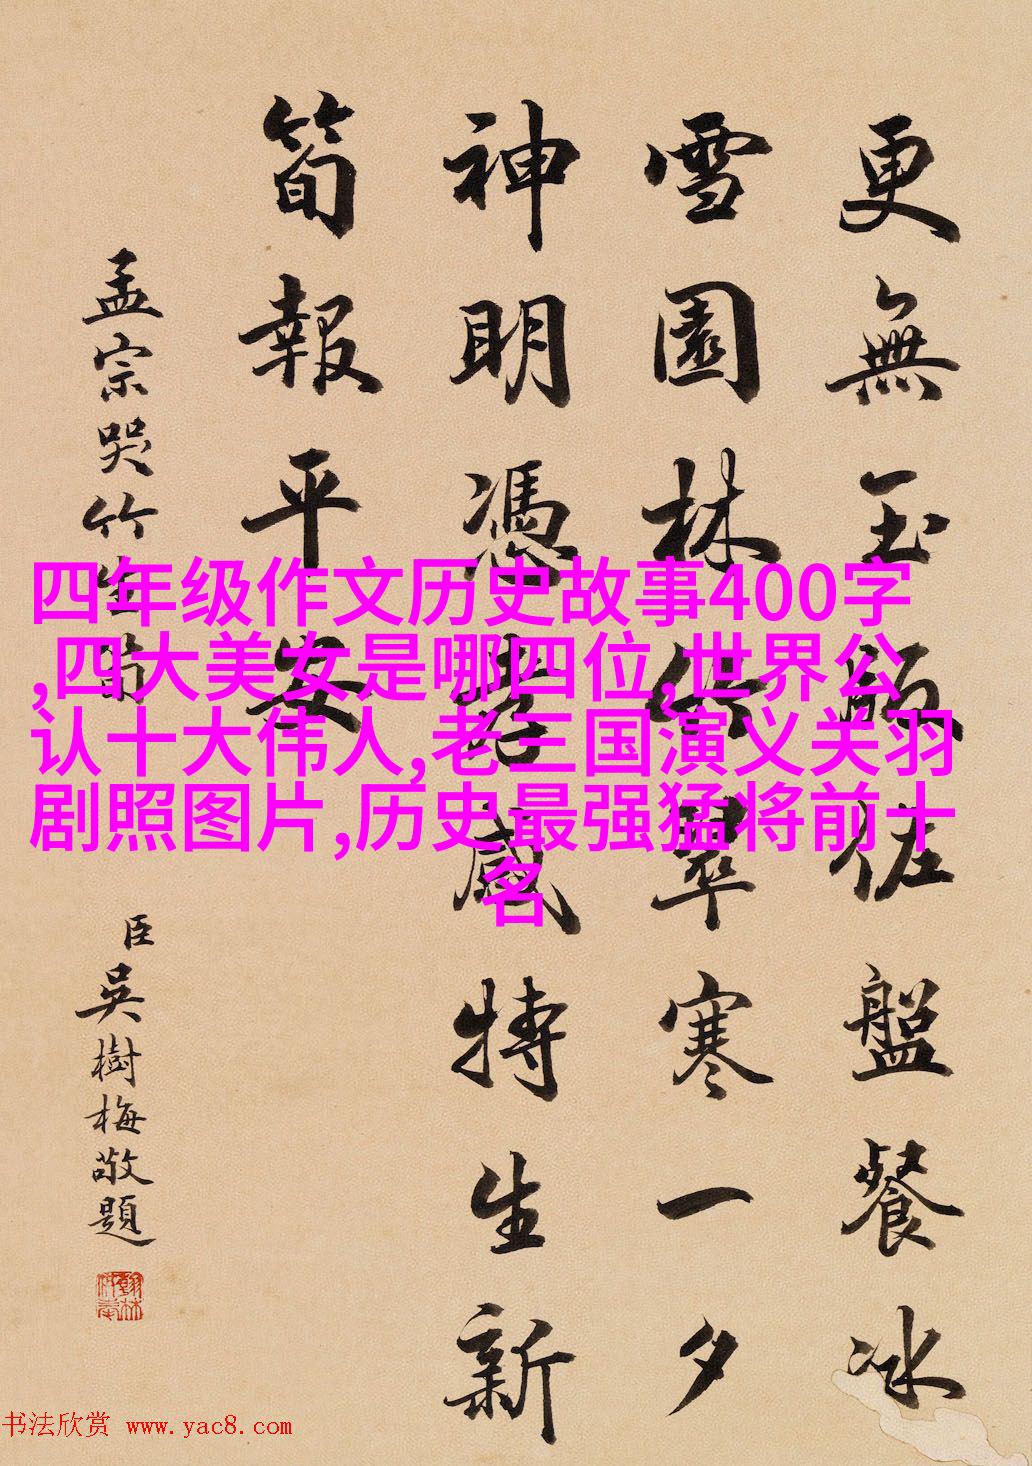 更無玉版佐盤餐冰
雪園林竹翠寒一夕
神明憑孝感特生新
筍報平安
孟宗哭竹生筍
臣吳樹梅敬題
四年级作文历史故事400字
,四大美女是哪四位,世界公
认十大伟人,老三国演义关羽
剧照图片,历史最强猛将前十
名
书法欣赏 www.yac8.com